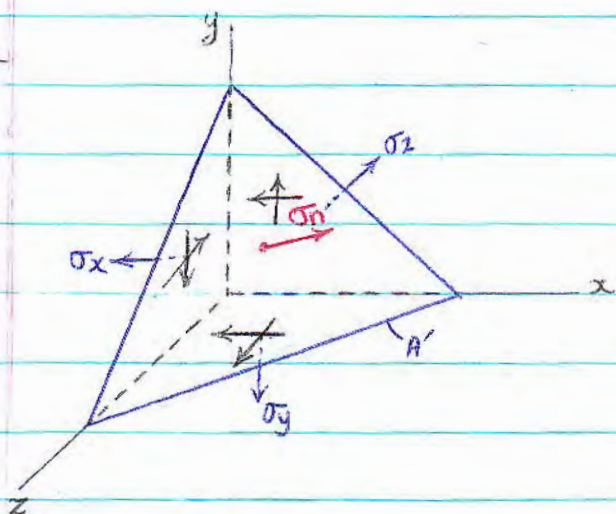 y
σz
σn
σx
x
A'
σy
z